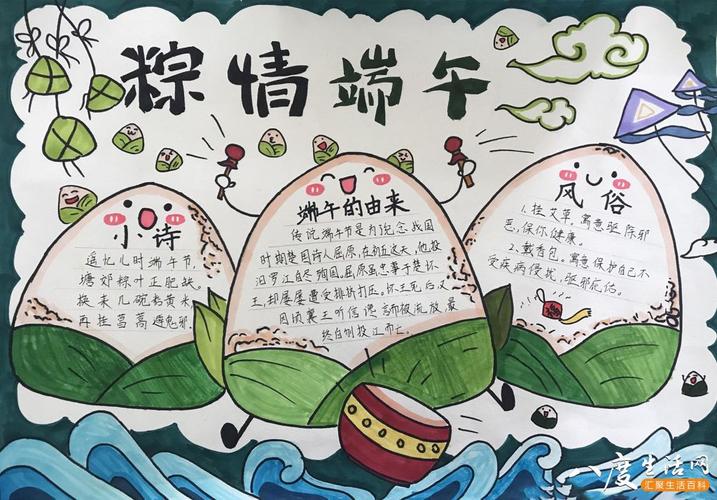 粽情端午
小诗
遥忆儿时端午节,
塘郊粽叶正肥缺。
换来几碗粘黄米,
再挂菖蒿避鬼邪。
端午的由来
传说端午节是为纪念战国
时期楚国诗人屈原,在初五这天,他投
汨罗江自尽殉国。屈原虽忠事于楚怀
王,却屡屡遭受排挤打压,怀王死后又
因顷襄王听信谗言而被流放,最
终自刎投江而亡。
风俗
1.挂艾草,寓意驱除邪
恶,保你健康。
2.戴香包,寓意保护自己不
受疾病侵扰,驱邪庇佑。
八度生活网
汇聚生活百科